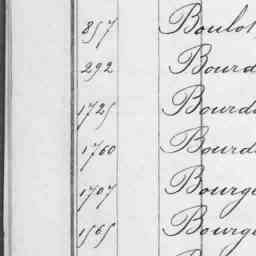 857 Boulos
292 Bourd
1725 Bourd
1760 Bourd
1707 Bourg
1565 Bourg